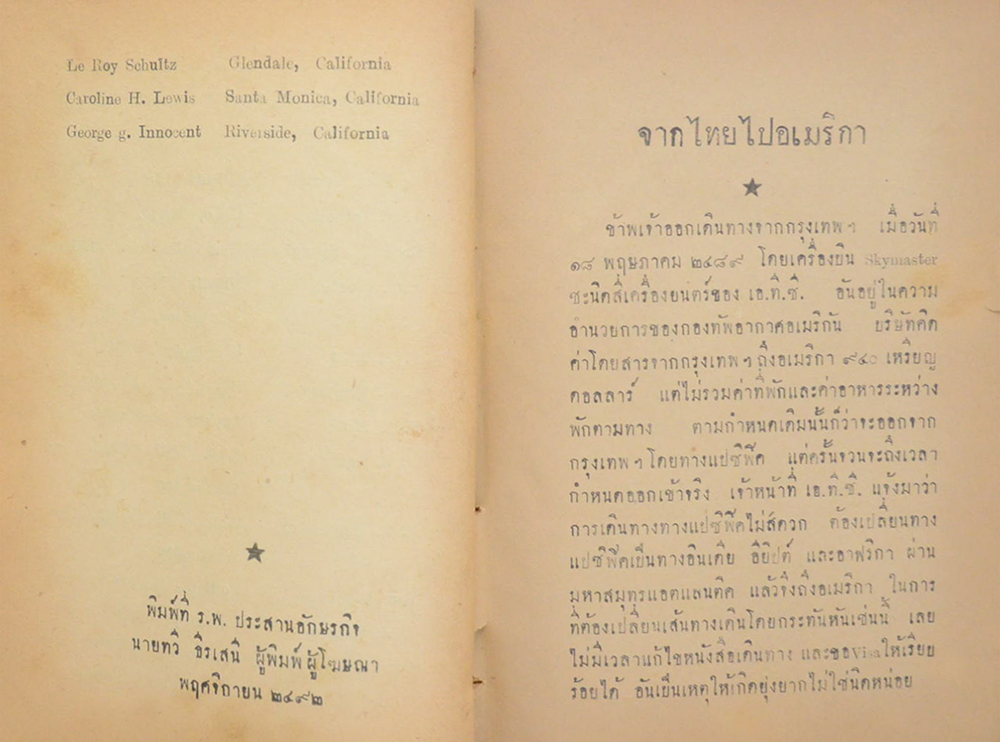 Le Roy Schultz Glendale, California
Caroline H. Lewis Santa Monica, California
George g. Innocent Riverside, California
★
พิมพ์ที่ ร.พ. ประสานอักษรกิจ
นายทวี ธีรเสนี ผู้พิมพ์ผู้โฆษณา
พฤศจิกายน ๒๔๙๒
จากไทยไปอเมริกา
★
ข้าพเจ้าออกเดินทางจากกรุงเทพฯ เมื่อวันที่
๑๘ พฤษภาคม ๒๔๘๙ โดยเครื่องบิน Skymaster
ชะนิดสี่เครื่องยนตร์ของ เอ.ที.ซี. อันอยู่ในความ
อำนวยการของกองทัพอากาศอเมริกัน บริษัทคิด
ค่าโดยสารจากกรุงเทพฯ ถึงอเมริกา ๙๔๐ เหรียญ
ดอลลาร์ แต่ไม่รวมค่าที่พักและค่าอาหารระหว่าง
พักตามทาง ตามกำหนดเดิมนั้นก็ว่าจะออกจาก
กรุงเทพฯ โดยทางแปซิฟิค แต่ครั้นจวนจะถึงเวลา
กำหนดออกเข้าจริง เจ้าหน้าที่ เอ.ที.ซี. แจ้งมาว่า
การเดินทางทางแปซิฟิคไม่สดวก ต้องเปลี่ยนทาง
แปซิฟิคเป็นทางอินเดีย อียิปต์ และอาฟริกา ผ่าน
มหาสมุทรแอตแลนติค แล้วจึงถึงอเมริกา ในการ
ที่ต้องเปลี่ยนเส้นทางเดินโดยกระทันหันเช่นนี้ เลย
ไม่มีเวลาแก้ไขหนังสือเดินทาง และขอVisaให้เรียบ
ร้อยได้ อันเป็นเหตุให้เกิดยุ่งยากไม่ใช่นิดหน่อย